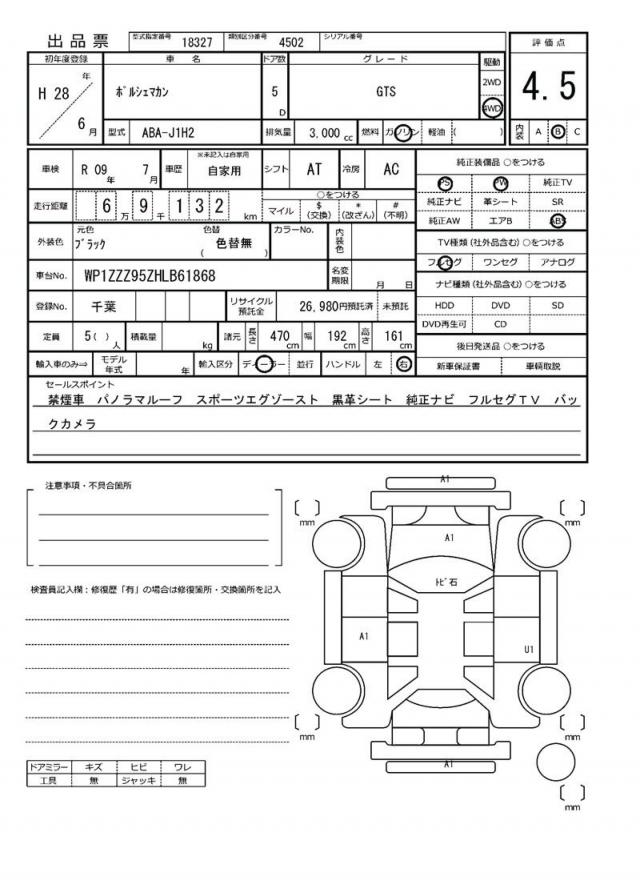 出品票 型式指定番号 18327 類別区分番号 4502 シリアル番号
初年度登録 車名 ドア数 グレード 駆動 評価点
H 28 年 6 月 ﾎﾟﾙｼｪﾏｶﾝ 5 D GTS 2WD 4WD 4.5
型式 ABA-J1H2 排気量 3,000 cc 燃料 ガソリン 軽油 ( ) 内装 A B C
車検 R 09 年 7 月 車歴 ※未記入は自家用 自家用 シフト AT 冷房 AC
純正装備品 ○をつける
PS PW 純正TV
純正ナビ 革シート SR
純正AW エアB ABS
走行距離 6 万 9 千 1 3 2 km ○をつける マイル $ (交換) * (改ざん) # (不明)
外装色 元色 ﾌﾞﾗｯｸ 色替 色替無 ( ) カラーNo. 内装色
TV種類 (社外品含む) ○をつける
フルセグ ワンセグ アナログ
車台No. WP1ZZZ95ZHLB61868 名変期限 月 日
ナビ種類 (社外品含む) ○をつける
HDD DVD SD
DVD再生可 CD
登録No. 千葉 リサイクル預託金 26,980円預託済 未預託
定員 5( ) 人 積載量 kg 諸元 長さ 470 cm 幅 192 cm 高さ 161 cm
後日発送品 ○をつける
新車保証書 車輌取説
輸入車のみ⇒ モデル年式 年 輸入区分 ディーラー 並行 ハンドル 左 右
セールスポイント
禁煙車 パノラマルーフ スポーツエグゾースト 黒革シート 純正ナビ フルセグＴＶ バッ
クカメラ
注意事項・不具合箇所
検査員記入欄：修復歴「有」の場合は修復箇所・交換箇所を記入
A1
mm mm
A1
ﾄﾋﾞ石
A1 U1
mm mm
A1
mm
ドアミラー キズ ヒビ ワレ
工具 無 ジャッキ 無